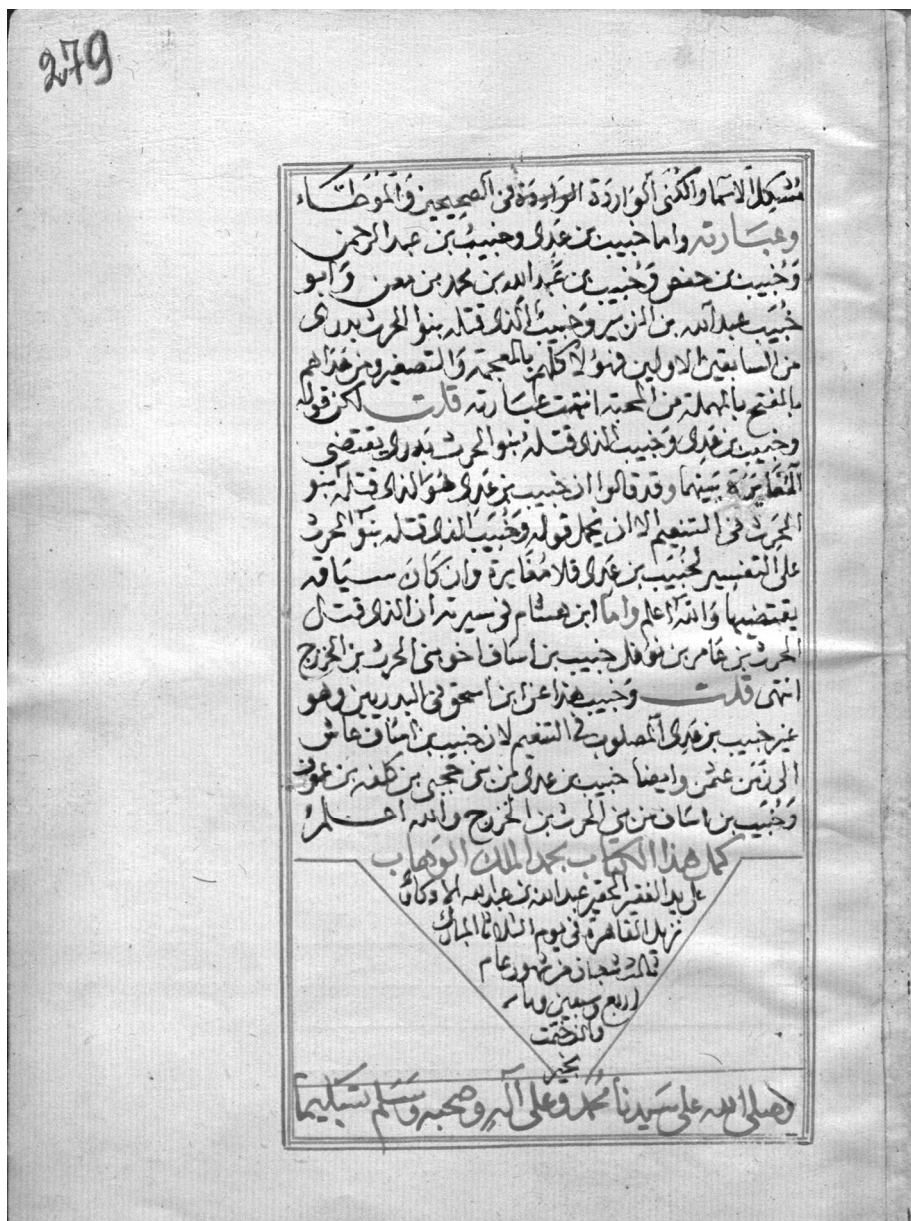 279
مُشكل الاسما والكنى الواردة الواردة في الصحيحين والموطاء
وعبارته واما خبيب بن عدى وخبيب بن عبد الرحمن
وخبيب بن حفص وخبيب بن عبد الله بن محمد بن معن وابو
خبيب عبد الله بن الزبير وخبيب الذى قتله بنوا الحرث بدرى
من السابقين الاولين فهؤلا كلهم بالمعجمة والتصغير ومن عداهم
بالفتح بالمهملة من المحبة انتهت عبارته قلت لكن قوله
وخبيب بن عدى وخبيب الذى قتله بنو الحرث بدرى يقتضى
المغايرة بينهما وقد قالوا ان خبيب بن عدى هو الذى قتله بنو
الحرث فى التنعيم الا ان يحمل قوله وخبيب الذى قتله بنوا الحرث
على التفسير لخبيب بن عدى فلا مغايرة وان كان سياقه
يقتضيها والله اعلم واما ابن هشام فى سيرته ان الذى قتل
الحرث بن عامر بن نوفل خبيب بن اساف اخو بنى الحرث بن الخزرج
انتهى قلت وخبيب هذا عن ابن اسحق فى البدريين وهو
غير خبيب بن عدى المصلوب فى التنعيم لان خبيب بن اساف عاش
الى زمن عثمن وايضا خبيب بن عدى من بنى جحجبى بن كلفه بن عوف
وخبيب بن اساف من بنى الحرث بن الخزرج والله اعلم
كمل هذا الكتاب بحمد الملك الوهاب
على يد الفقير الحقير عبد الله بن عبد الله الادكاوى
نزيل القاهرة فى يوم الثلاثا المبارك
ثالث شعبان من شهور عام
اربع وسبعين
بخير
وصلى الله على سيدنا محمد وعلى آله وصحبه وسلم تسليما